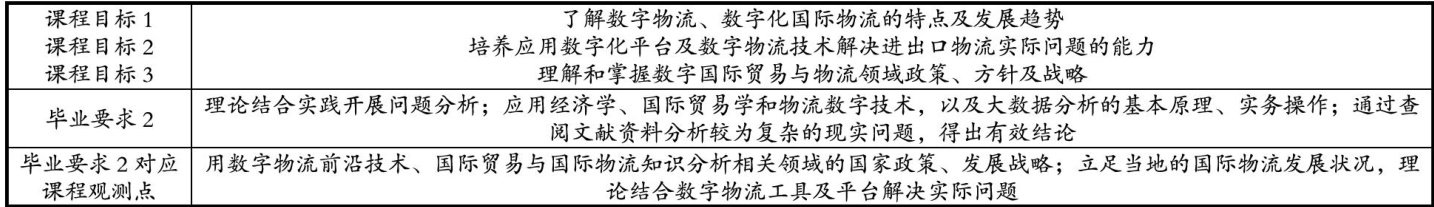 课程目标 1 了解数字物流、数字化国际物流的特点及发展趋势
课程目标 2 培养应用数字化平台及数字物流技术解决进出口物流实际问题的能力
课程目标 3 理解和掌握数字国际贸易与物流领域政策、方针及战略
毕业要求 2
理论结合实践开展问题分析；应用经济学、国际贸易学和物流数字技术，以及大数据分析的基本原理、实务操作；通过查
阅文献资料分析较为复杂的现实问题，得出有效结论
毕业要求 2 对应
课程观测点
用数字物流前沿技术、国际贸易与国际物流知识分析相关领域的国家政策、发展战略；立足当地的国际物流发展状况，理
论结合数字物流工具及平台解决实际问题